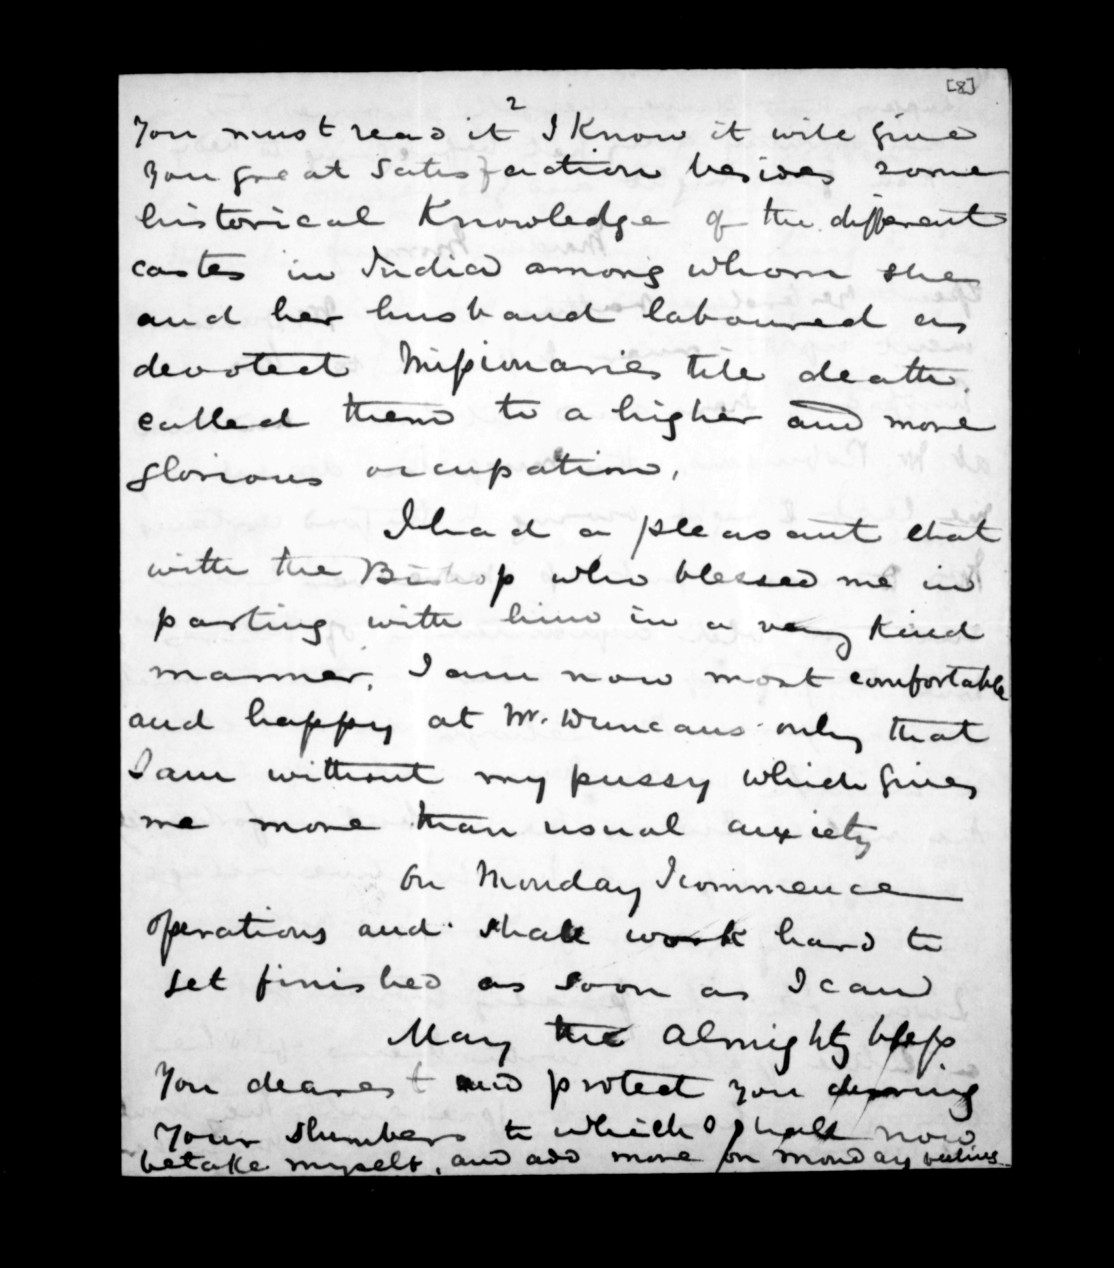 [8]
2
You must read it I Know it will give
you great satisfaction besides some
historical Knowledge of the different
castes in India among whom she
and her husband laboured as
devoted Missionaries till death
called them to a higher and more
glorious occupation,
I had a pleasant chat
with the Bishop who blessed me in
parting with him in a very kind
manner. I am now most comfortable
and happy at Mr. Duncans only that
I am without my pussy which gives
me more than usual anxiety
On Monday I commence
operations and shall work hard to
get finished as soon as I can
May the Almighty bless
You dearest and protect you during
Your slumbers to which I shall now
betake myself, and add more on monday